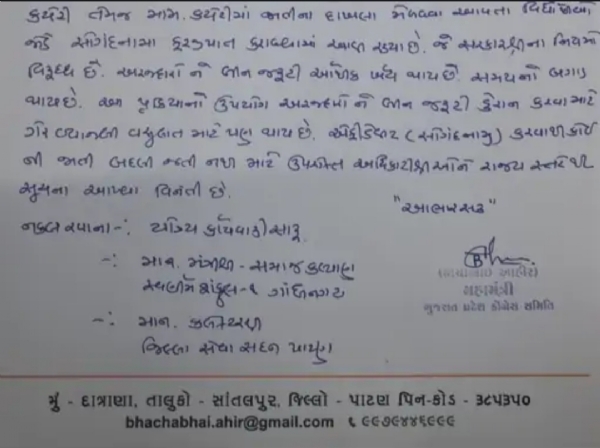 કચેરી તેમજ મામ. કચેરીમાં જાતીના દાખલા મેળવવા આવતા વિદ્યાર્થીઓ
જોડે સોગંદનામા ફરજીયાત કરાવવામાં આવી રહ્યા છે. જે સરકારશ્રીના નિયમો
વિરૂધ્ધ છે. અરજદારોને બીન જરૂરી આર્થીક ખર્ચ થાય છે. સમયનો બગાડ
થાય છે. આ પ્રક્રિયાનો ઉપયોગ અરજદારોને બીન જરૂરી હેરાન કરવા માટે
ગેર વ્યાજબી વસુલાત માટે પણ થાય છે. એફીડેવીટ (સોગંદનામુ) કરવાથી કોઈ
ની જાતી બદલી જતી નથી માટે ઉપરોક્ત અધિકારીશ્રીઓને રાજ્ય સ્તરેથી
સુચના આપવા વિનંતી છે.
"આભાર સહ"
નકલ રવાના -: યોગ્ય કાર્યવાહી સારૂ
-: માન. મંત્રીશ્રી - સમાજ કલ્યાણ
સ્વર્ણિમ સંકુલ-૧ ગાંધીનગર
-: માન. કલેક્ટરશ્રી
જિલ્લા સેવા સદન પાટણ
મહામંત્રી
ગુજરાત પ્રદેશ કોંગ્રેસ સમિતિ
મુ - દાત્રાણા, તાલુકો - સાંતલપુર, જિલ્લો - પાટણ પિન-કોડ - ૩૮૫૩૫૦
bhachabhai.ahir@gmail.com ૯૯૭૯૪૪૬૯૯૯